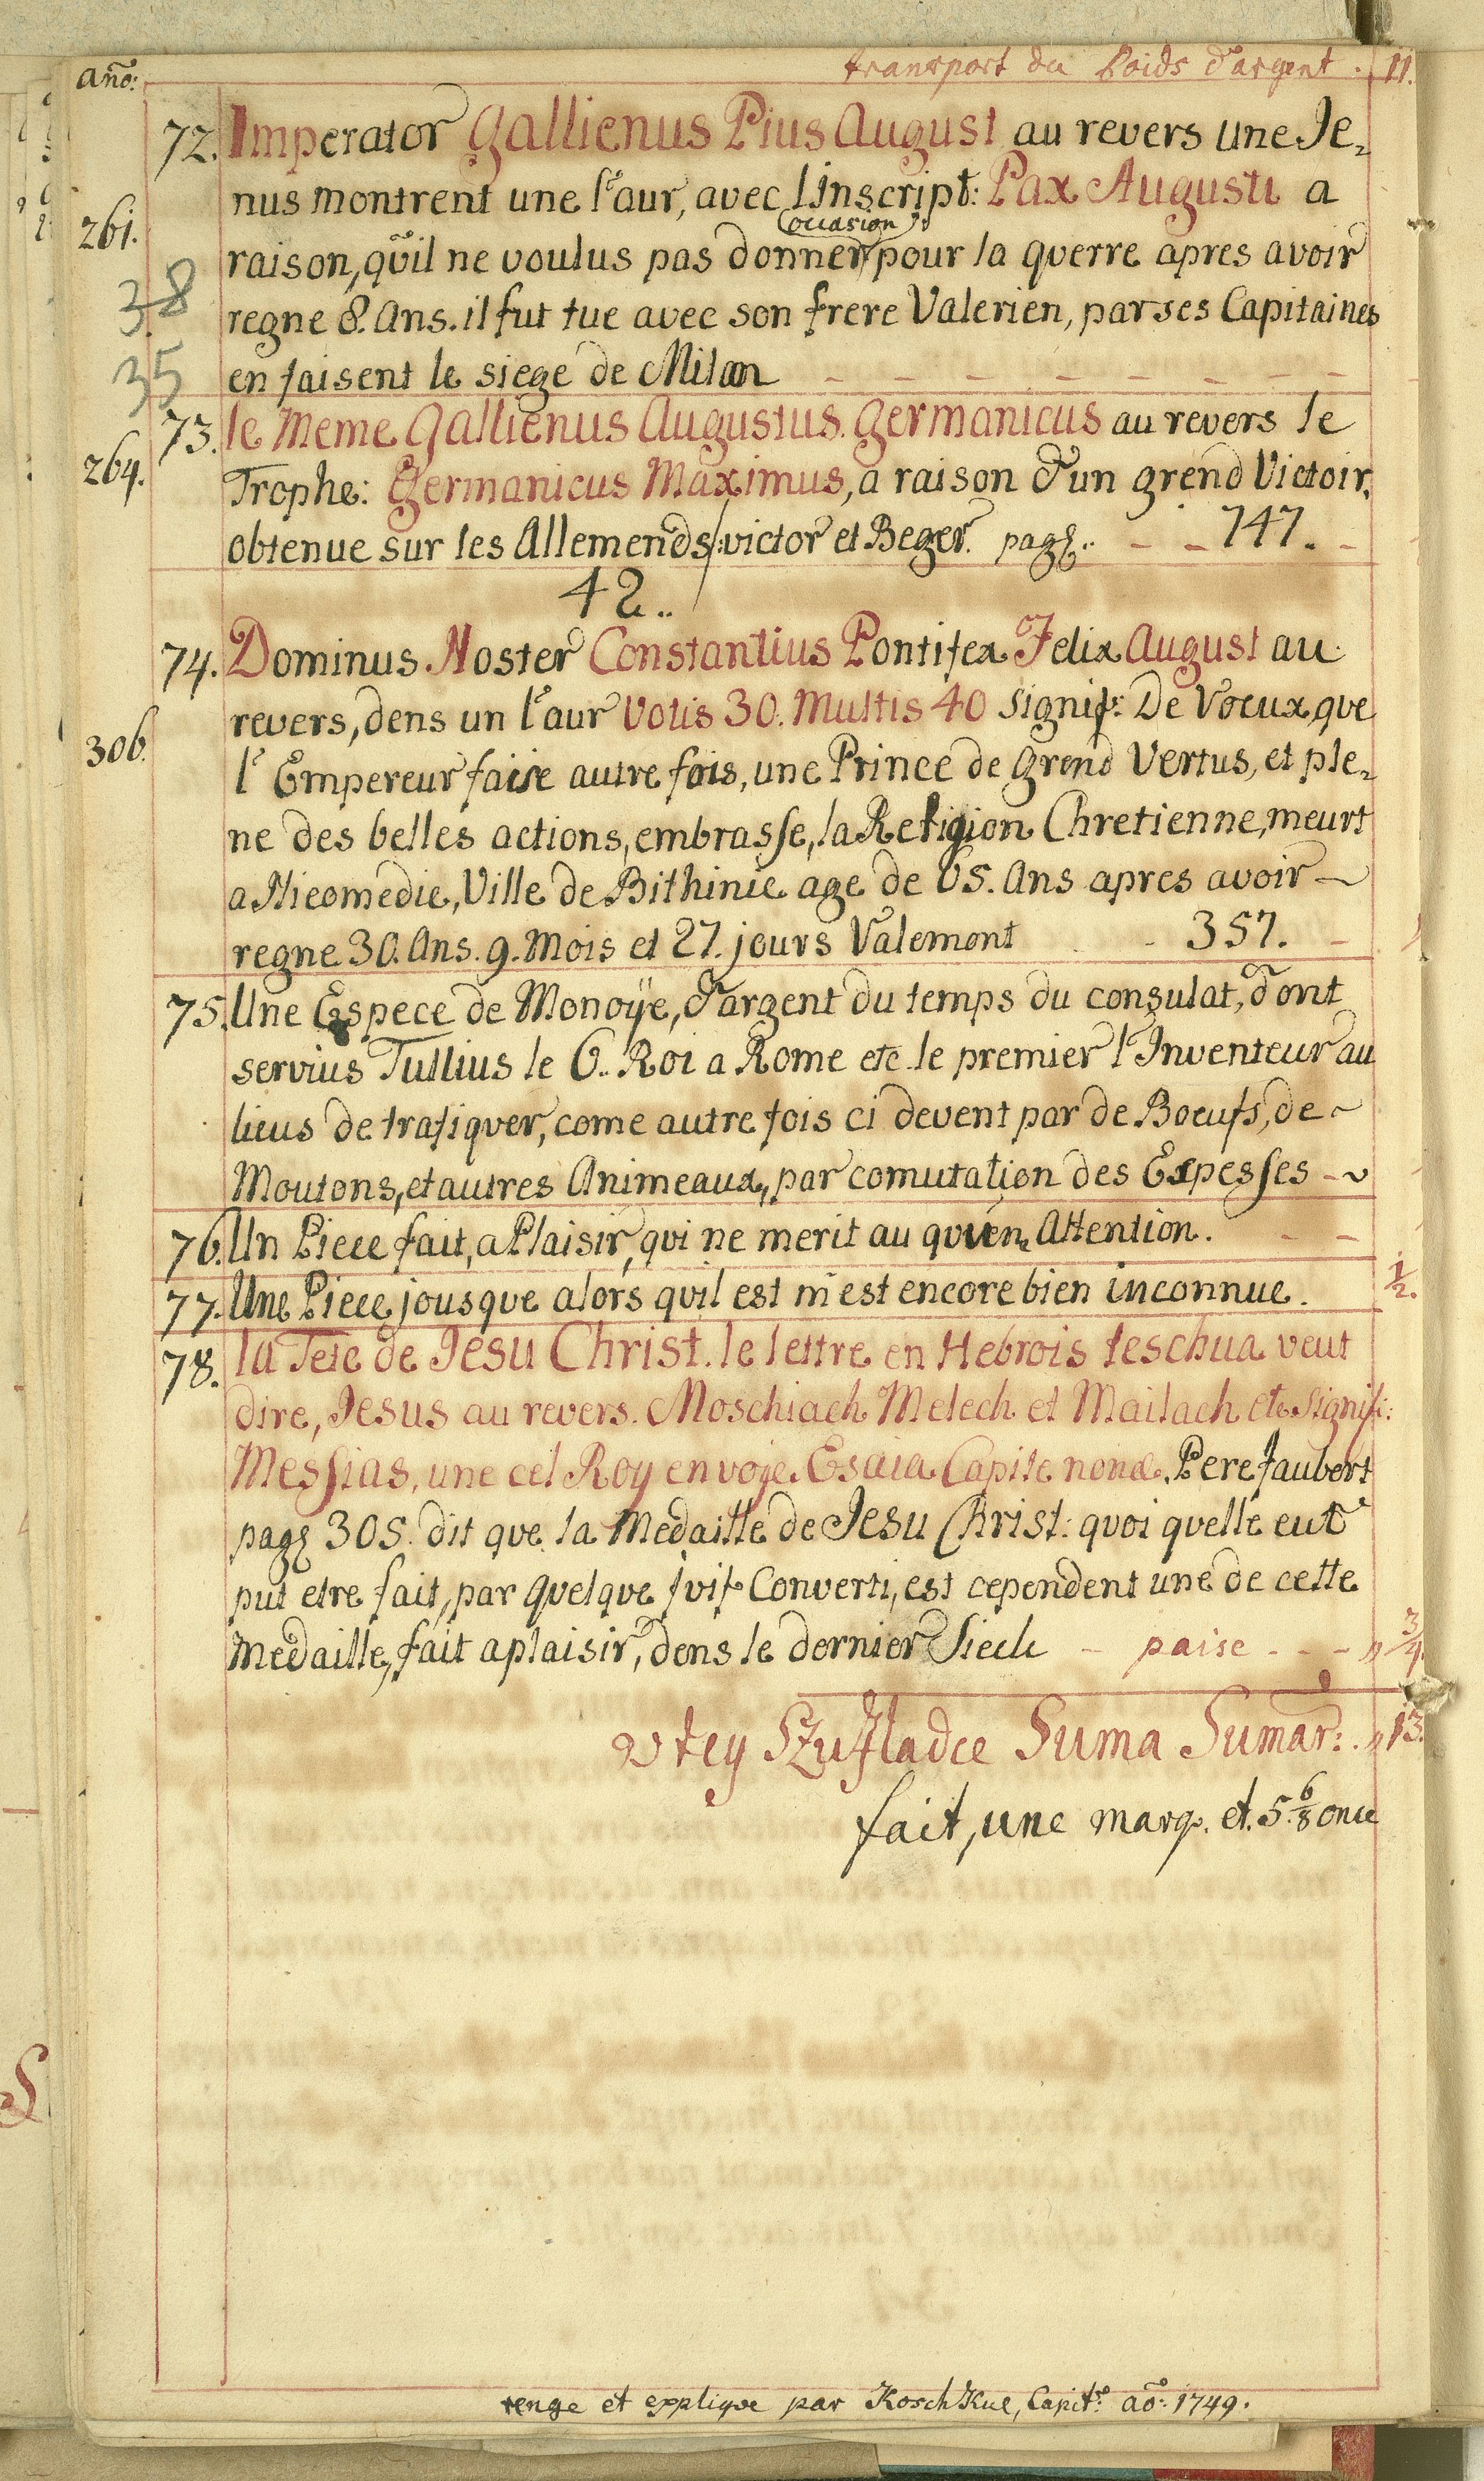 año: transport du Poids d'argent. 11.
72. Imperator Gallienus Pius August au revers une Je„
nus montrent une l'aur, avec l'inscript: Pax Augusti a
261.
occasion
raison, qu'il ne voulus pas donner pour la querre apres avoir
38
regne 8. Ans. il fut tue avec son frere Valerien, par ses Capitaines
35
en faisent le siege de Milan
73. le Meme Gallienus Augustus. Germanicus au revers le
264.
Trophe: Germanicus Maximus, a raison d'un grend Victoir,
obtenue sur les Allemends/: victor et Beger. pag: 747.
42..
74. Dominus Noster Constantius Pontifex Felix August au
revers, dens un l'aur Votis 30. Multis 40 signif: De Voeux que
306.
l'Empereur faise autre fois, une Prince de Grend Vertus, et ple„
ne des belles actions, embrasse, la Religion Chretienne, meurt
a Nicomedie, Ville de Bithinie age de 65. Ans apres avoir ~
regne 30. Ans. 9. Mois et 27. jours Valemont 357.
75. Une Espece de Monoÿe, d'argent du temps du consulat, dont
servius Tullius le 6.. Roi a Rome etc. le premier l'Inventeur au
lieus de trafiquer, come autre fois ci devent par de Boeufs, de ~
Moutons, et autres Animeaux, par comutation des Espesses - ~
76. Un Piece fait, a Plaisir, qui ne merit au quien Attention.
77. Une Piece jousque alors qvil est m'est encore bien inconnue. 1/2.
78. la Tete de Jesu Christ. le lettre en Hebrois Jeschua veut
dire, Jesus au revers. Moschiach Melech et Mailach etc. Signif:
Messias, une cel Roy envoje. Esaia Capite nonæ. Pere Jaubert
pag 305. dit que la Medaille de Jesu Christ: quoi quelle eut
put etre fait, par quelque Juif Converti, est cependent une de cette
Medaille, fait a plaisir, dens le dernier Siecle - paise - - - „ 3/4.
w tey Szufladce Suma Sumar: „ 13.
fait, une marq. et. 5. 6/8 once
renge et explique par KoschKue, Capit: aō: 1749.